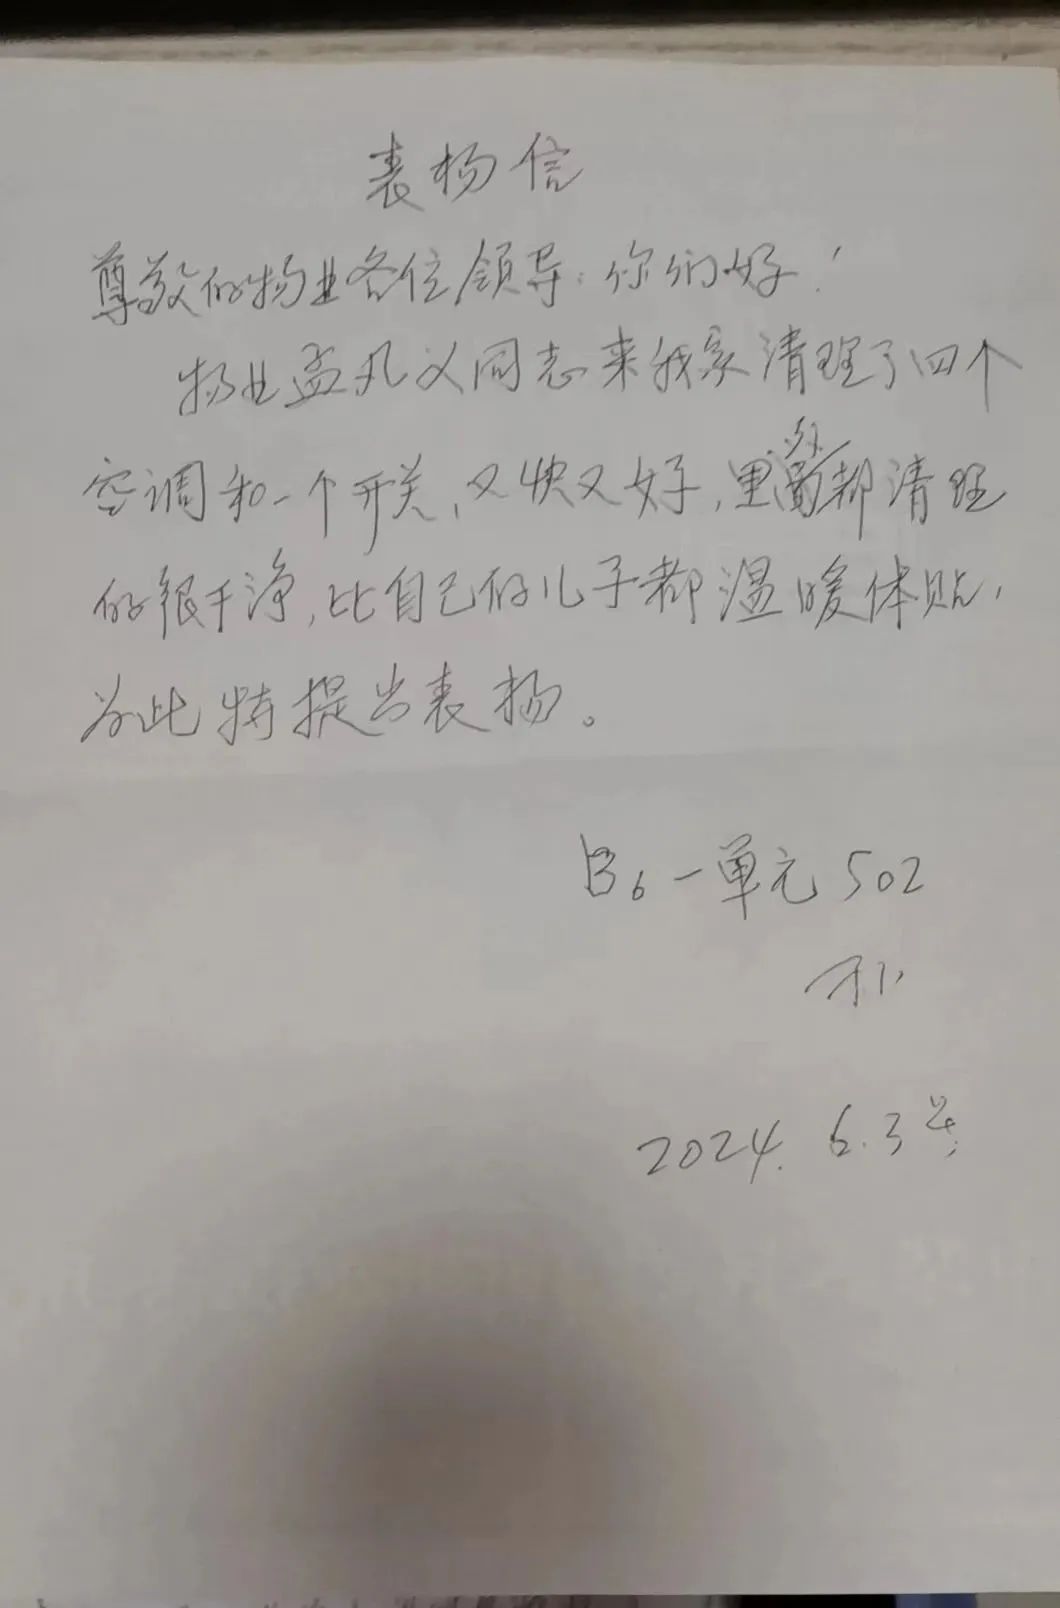 表杨信
尊敬的物业各位领导:你们好!
物业孟凡义同志来我家清理了四个
空调和一个开关,又快又好,里外都清理
的很干净,比自己的儿子都温暖体贴,
为此特提出表杨。
B6一单元502
2024.6.3号